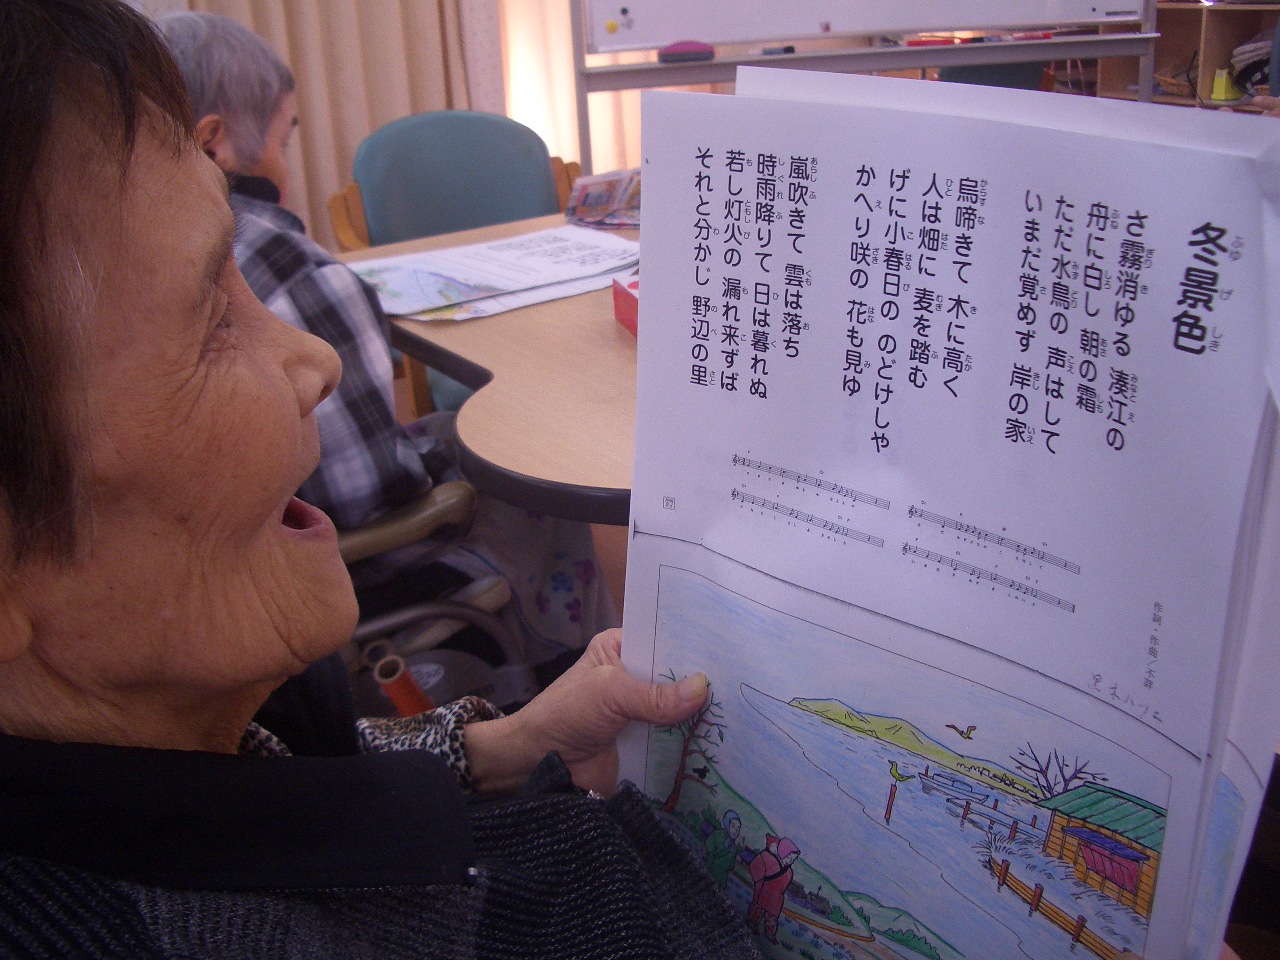 冬景色
さ霧消ゆる 湊江の
舟に白し 朝の霜
ただ水鳥の 声はして
いまだ覚めず 岸の家
烏啼きて 木に高く
人は畑に 麦を踏む
げに小春日の のどけしや
かへり咲の 花も見ゆ
嵐吹きて 雲は落ち
時雨降りて 日は暮れぬ
若し灯火の 漏れ来ずば
それと分かじ 野辺の里
作詞・作曲/不詳